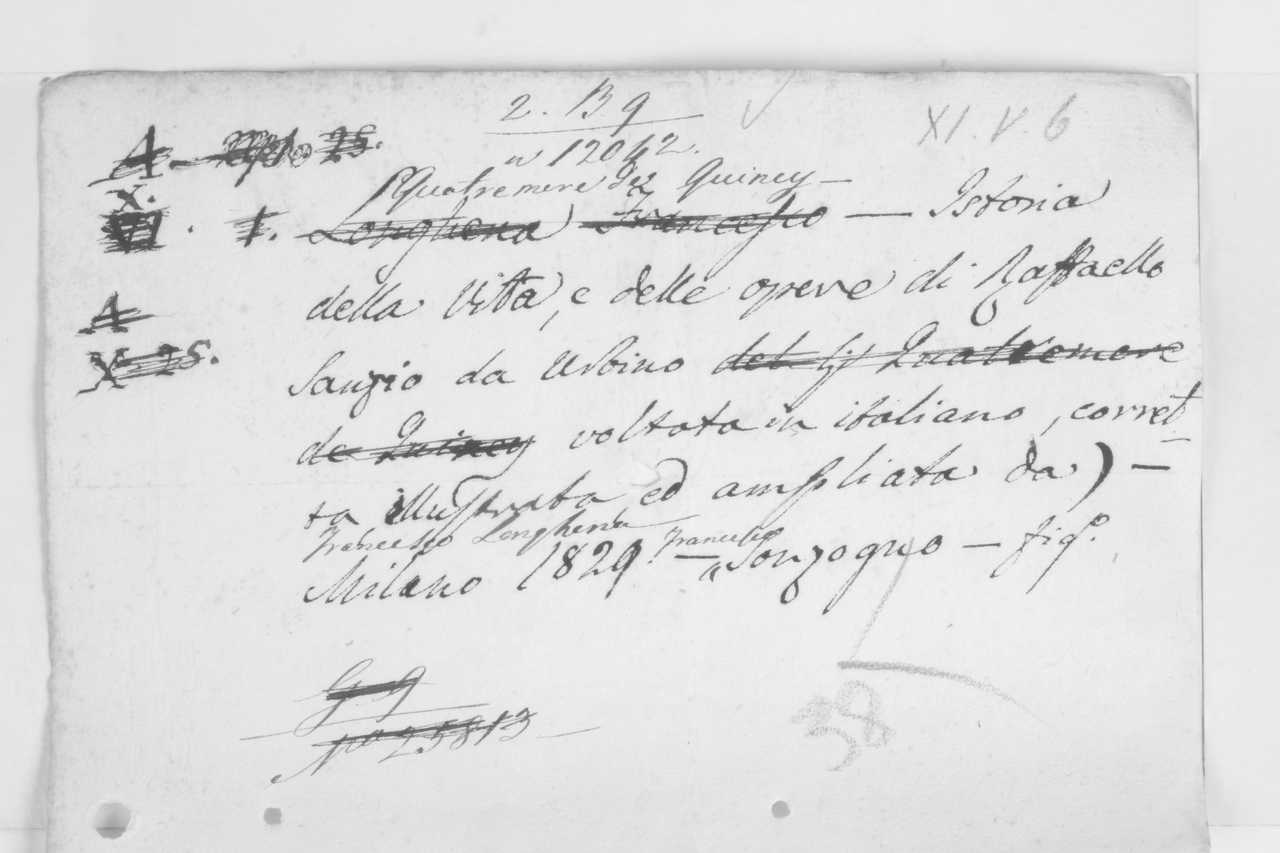 2. B 9
XI. V. 6
A
n 12042.
X.
Quatremere de Quincy —
VI. I. Longhena Francesco — Istoria
della Vitta, e delle opere di Raffaello
A
Sanzio da Urbino del Sig Quatremere
X 25.
de Quincy voltata in italiano, corret
ta illustrata ed ampliata da) —
Francesco Longhena
Milano 1829. — Francesco Sonzogno — fig.º
38
G 9
Nº 25813